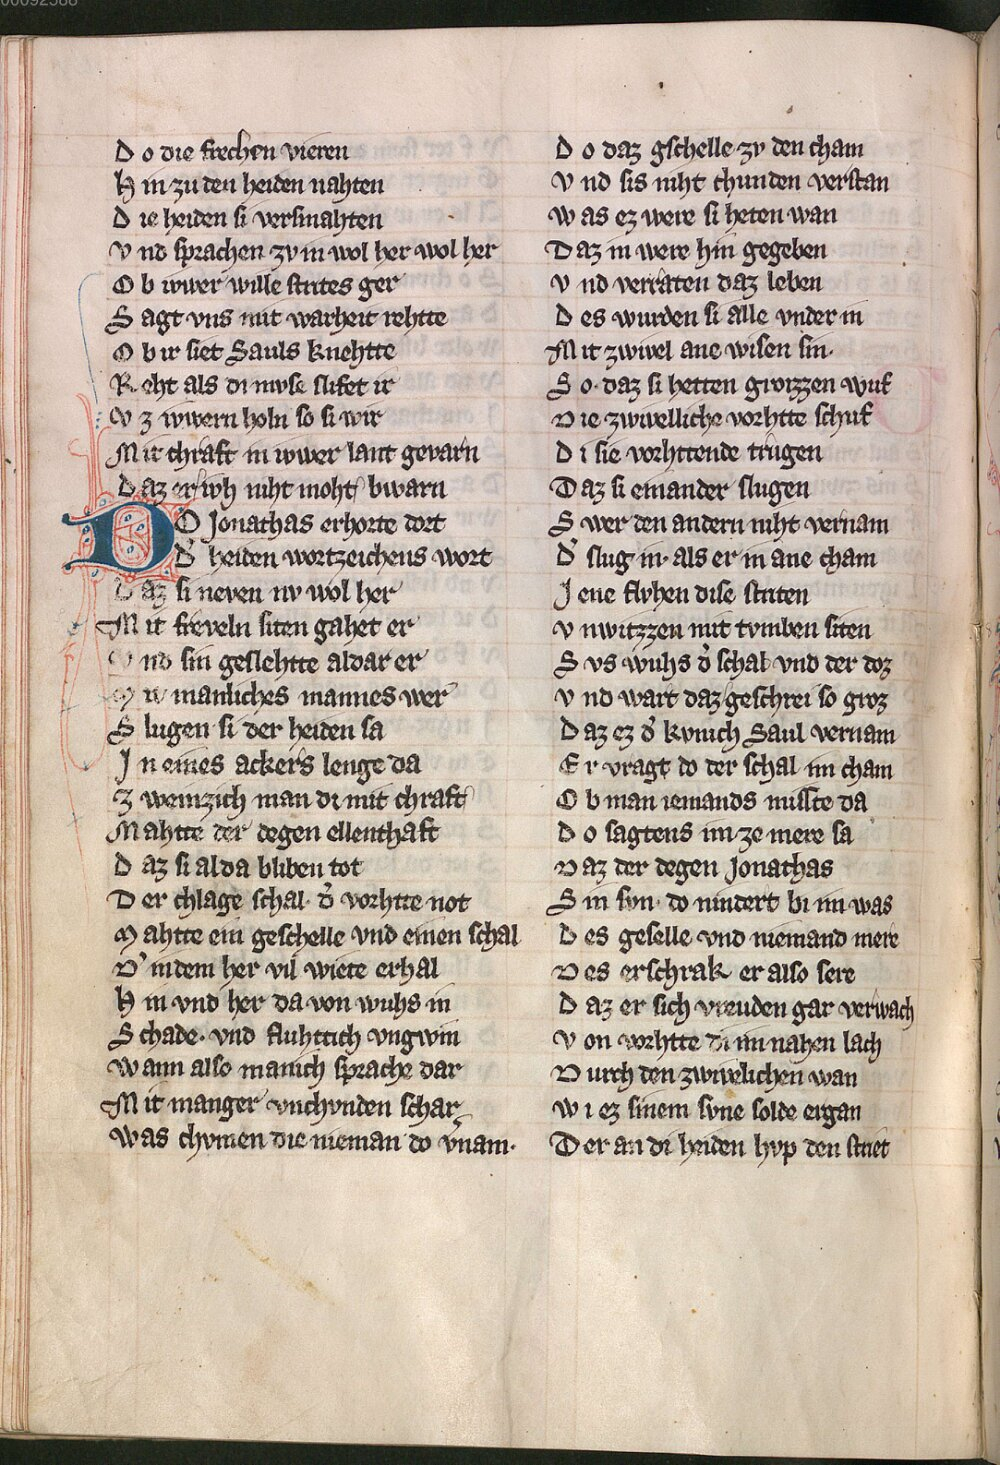 00092588
Do die frechen vieren
Hin zu den heiden nahten
Die heiden si versmahten
Vnd sprachen zv in wol her wol her
Ob iwer wille strites ger
Sagt vns mit warheit rehtte
Ob ir siet Sauls knehtte
Reht als di mvse slifet ir
Vz iwern holn so si wir
Mit chraft in iwer lant gevarn
Daz er iwh niht moht bwarn
DO Jonathas erhorte dort
D' heiden wortzeichens wort
Daz si neven nv wol her
Mit freveln siten gahet er
Vnd sin geslehtte aldar er
manliches mannes wer
Slugen si der heiden sa
In eines ackers lenge da
Zweinzich man di mit chraft
Mahtte der degen ellenthaft
Daz si alda bliben tot
Der chlage schal· d' vorhtte not
Mahtte ein geschelle vnd einen schal
D' in dem her vil wiete erhal
Hin vnd her da von wuhs in
Schade· vnd fluhttich vngwin
Wann also manich sprache dar
Mit manger vnchvnden schar
Was chvmen die nieman do v'nam·
Do daz gschelle zv den cham
Vnd sis niht chunden verstan
Was ez were si heten wan
Daz in were hin gegeben
Vnd verraten daz leben
Des wurden si alle vnder in
Mit zwivel ane wisen sin·
So· daz si hetten groizzen wuf
Die zwivelliche vorhtte schuf
Di sie vorhttende trugen
Daz si einander slugen
Swer den andern niht vernam
D' slug in· als er in ane cham
Jene flvhen dise striten
Vnwitzzen mit tvmben siten
Svs wuhs d' schal vnd der doz
Vnd wart daz geschrei so groz
Daz ez d' kvnich Saul vernam
Er vragt do der schal im cham
Ob man iemands misste da
Do sagtens im ze mere sa
Daz der degen Jonathas
Sin svn· do nindert bi im was
Des geselle vnd niemand mere
Des erschrak er also sere
Daz er sich vreuden gar verwach
Von vorhtte di im nahen lach
Durch den zwivelichen wan
Wi ez sinem svne solde ergan
Der an di heiden hvp den striet